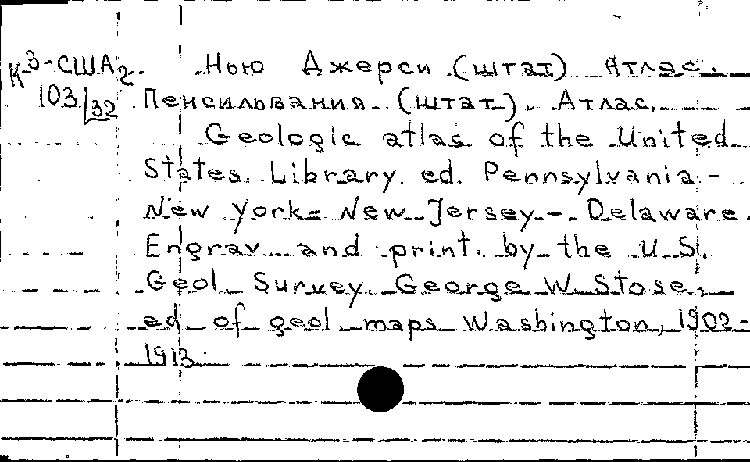 К3-США2 Нью Джерси (штат) Атлас.
103/32 Пенсильвания (штат). Атлас.
Geologic atlas of the United
States. Library ed. Pennsylvania -
New York - New Jersey - Delaware.
Engrav. and print. by the U.S.
Geol. Survey. George W. Stose,
ed. of geol. maps. Washington, 1902-
1913